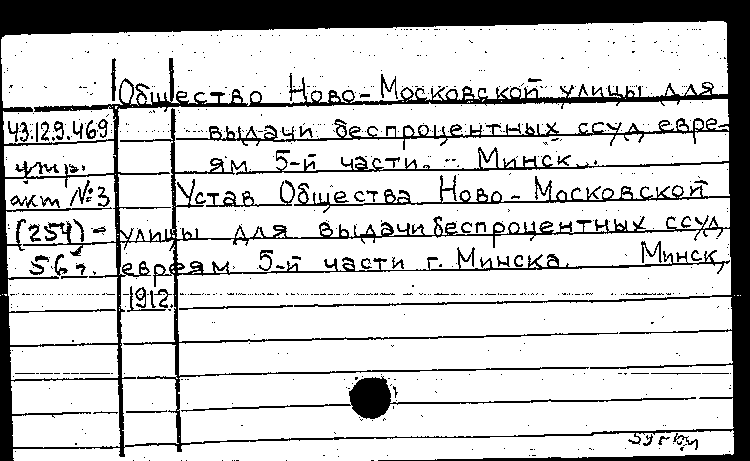 Общество Ново-Московской улицы для
43.12.9.469 выдачи беспроцентных ссуд евре-
утр. ям 5-й части. - Минск.
акт №3 Устав Общества Ново-Московской
(254)- улицы для выдачи беспроцентных ссуд
56г. евреям 5-й части г. Минска. Минск,
1912.